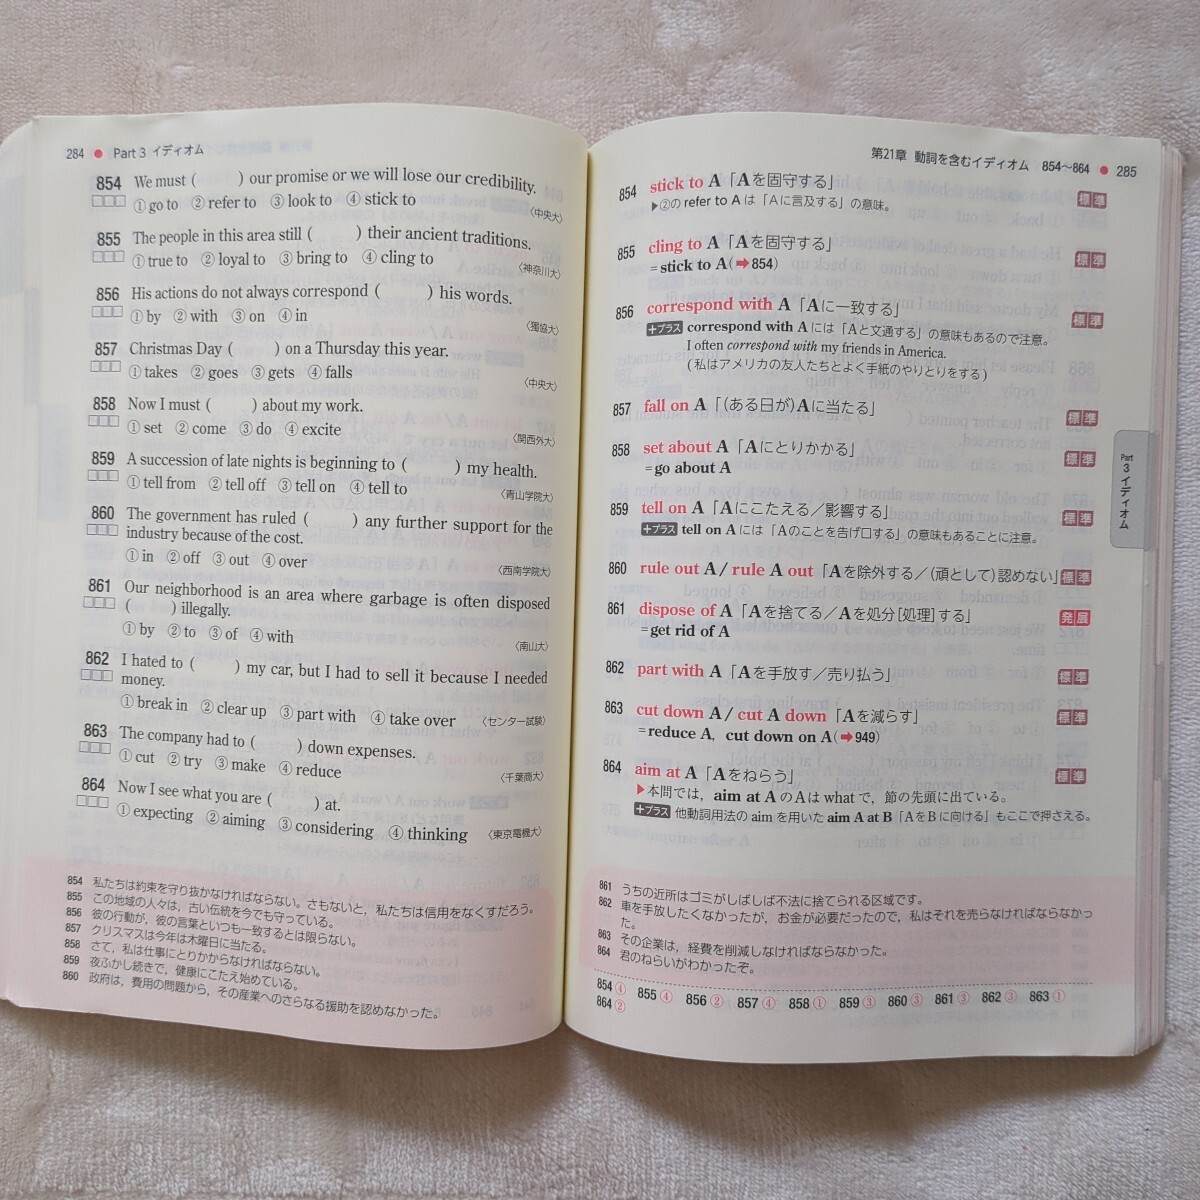 284 ● Part 3 イディオム
854 We must (　　) our promise or we will lose our credibility.
①go to ②refer to ③look to ④stick to 〈中央大〉
855 The people in this area still (　　) their ancient traditions.
①true to ②loyal to ③bring to ④cling to 〈神奈川大〉
856 His actions do not always correspond (　　) his words.
①by ②with ③on ④in 〈獨協大〉
857 Christmas Day (　　) on a Thursday this year.
①takes ②goes ③gets ④falls 〈中央大〉
858 Now I must (　　) about my work.
①set ②come ③do ④excite 〈関西外大〉
859 A succession of late nights is beginning to (　　) my health.
①tell from ②tell off ③tell on ④tell to 〈青山学院大〉
860 The government has ruled (　　) any further support for the
industry because of the cost.
①in ②off ③out ④over 〈西南学院大〉
861 Our neighborhood is an area where garbage is often disposed
(　　) illegally.
①by ②to ③of ④with 〈南山大〉
862 I hated to (　　) my car, but I had to sell it because I needed
money.
①break in ②clear up ③part with ④take over 〈センター試験〉
863 The company had to (　　) down expenses.
①cut ②try ③make ④reduce 〈千葉商大〉
864 Now I see what you are (　　) at.
①expecting ②aiming ③considering ④thinking 〈東京電機大〉
854 私たちは約束を守り抜かなければならない。さもないと，私たちは信用をなくすだろう。
855 この地域の人々は，古い伝統を今でも守っている。
856 彼の行動が，彼の言葉といつも一致するとは限らない。
857 クリスマスは今年は木曜日に当たる。
858 さて，私は仕事にとりかからなければならない。
859 夜ふかし続きで，健康にこたえ始めている。
860 政府は，費用の問題から，その産業へのさらなる援助を認めなかった。
第21章 動詞を含むイディオム 854～864 ● 285
854 stick to A「Aを固守する」 標準
▶②の refer to A は「Aに言及する」の意味。
855 cling to A「Aを固守する」 標準
＝stick to A(➡854)
856 correspond with A「Aに一致する」 標準
＋プラス correspond with A には「Aと文通する」の意味もあるので注意。
I often correspond with my friends in America.
(私はアメリカの友人たちとよく手紙のやりとりをする)
857 fall on A「(ある日が)Aに当たる」 標準
858 set about A「Aにとりかかる」 標準
＝go about A
859 tell on A「Aにこたえる／影響する」 標準
＋プラス tell on A には「Aのことを告げ口する」の意味もあることに注意。
860 rule out A / rule A out「Aを除外する／(頑として)認めない」 標準
861 dispose of A「Aを捨てる／Aを処分[処理]する」 発展
＝get rid of A
862 part with A「Aを手放す／売り払う」 標準
863 cut down A / cut A down「Aを減らす」 標準
＝reduce A, cut down on A(➡949)
864 aim at A「Aをねらう」 標準
▶本問では，aim at A のAは what で，節の先頭に出ている。
＋プラス 他動詞用法の aim を用いた aim A at B「AをBに向ける」もここで押さえる。
Part 3 イディオム
861 うちの近所はゴミがしばしば不法に捨てられる区域です。
862 車を手放したくなかったが，お金が必要だったので，私はそれを売らなければならなかっ
た。
863 その企業は，経費を削減しなければならなかった。
864 君のねらいがわかったぞ。
854 ④ 855 ④ 856 ② 857 ④ 858 ① 859 ③ 860 ③ 861 ③ 862 ③ 863 ①
864 ②